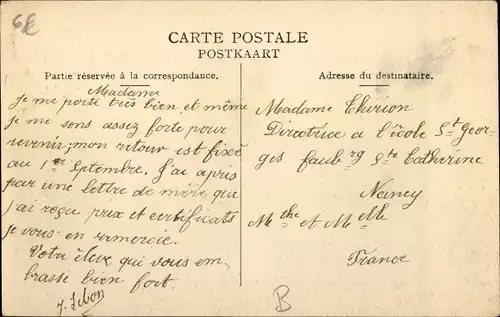 6€
CARTE POSTALE
POSTKAART
Partie réservée à la correspondance.
Adresse du destinataire.
Madame
Je me porte très bien et même
je me sens assez forte pour
revenir; mon retour est fixée
au 1er Septembre. J'ai apris
par une lettre de mère que
j'ai reçu prix et certificats
je vous en remercie.
Votre élève qui vous em-
brasse bien fort.
J. Lebon
Madame Thirion
Directrice a l'école St Geor-
ges faubrg Ste Catherine
Nancy
Mthe et Melle
France
B